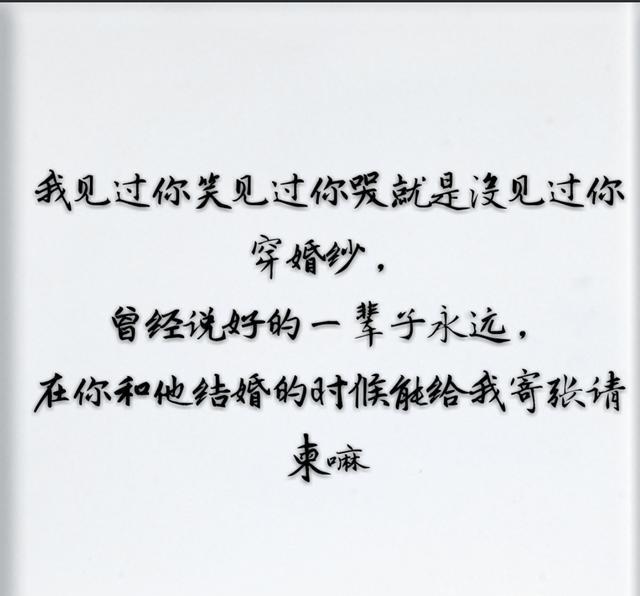 我见过你笑见过你哭就是没见过你
穿婚纱，
曾经说好的一辈子永远，
在你和他结婚的时候能给我寄张请
柬嘛